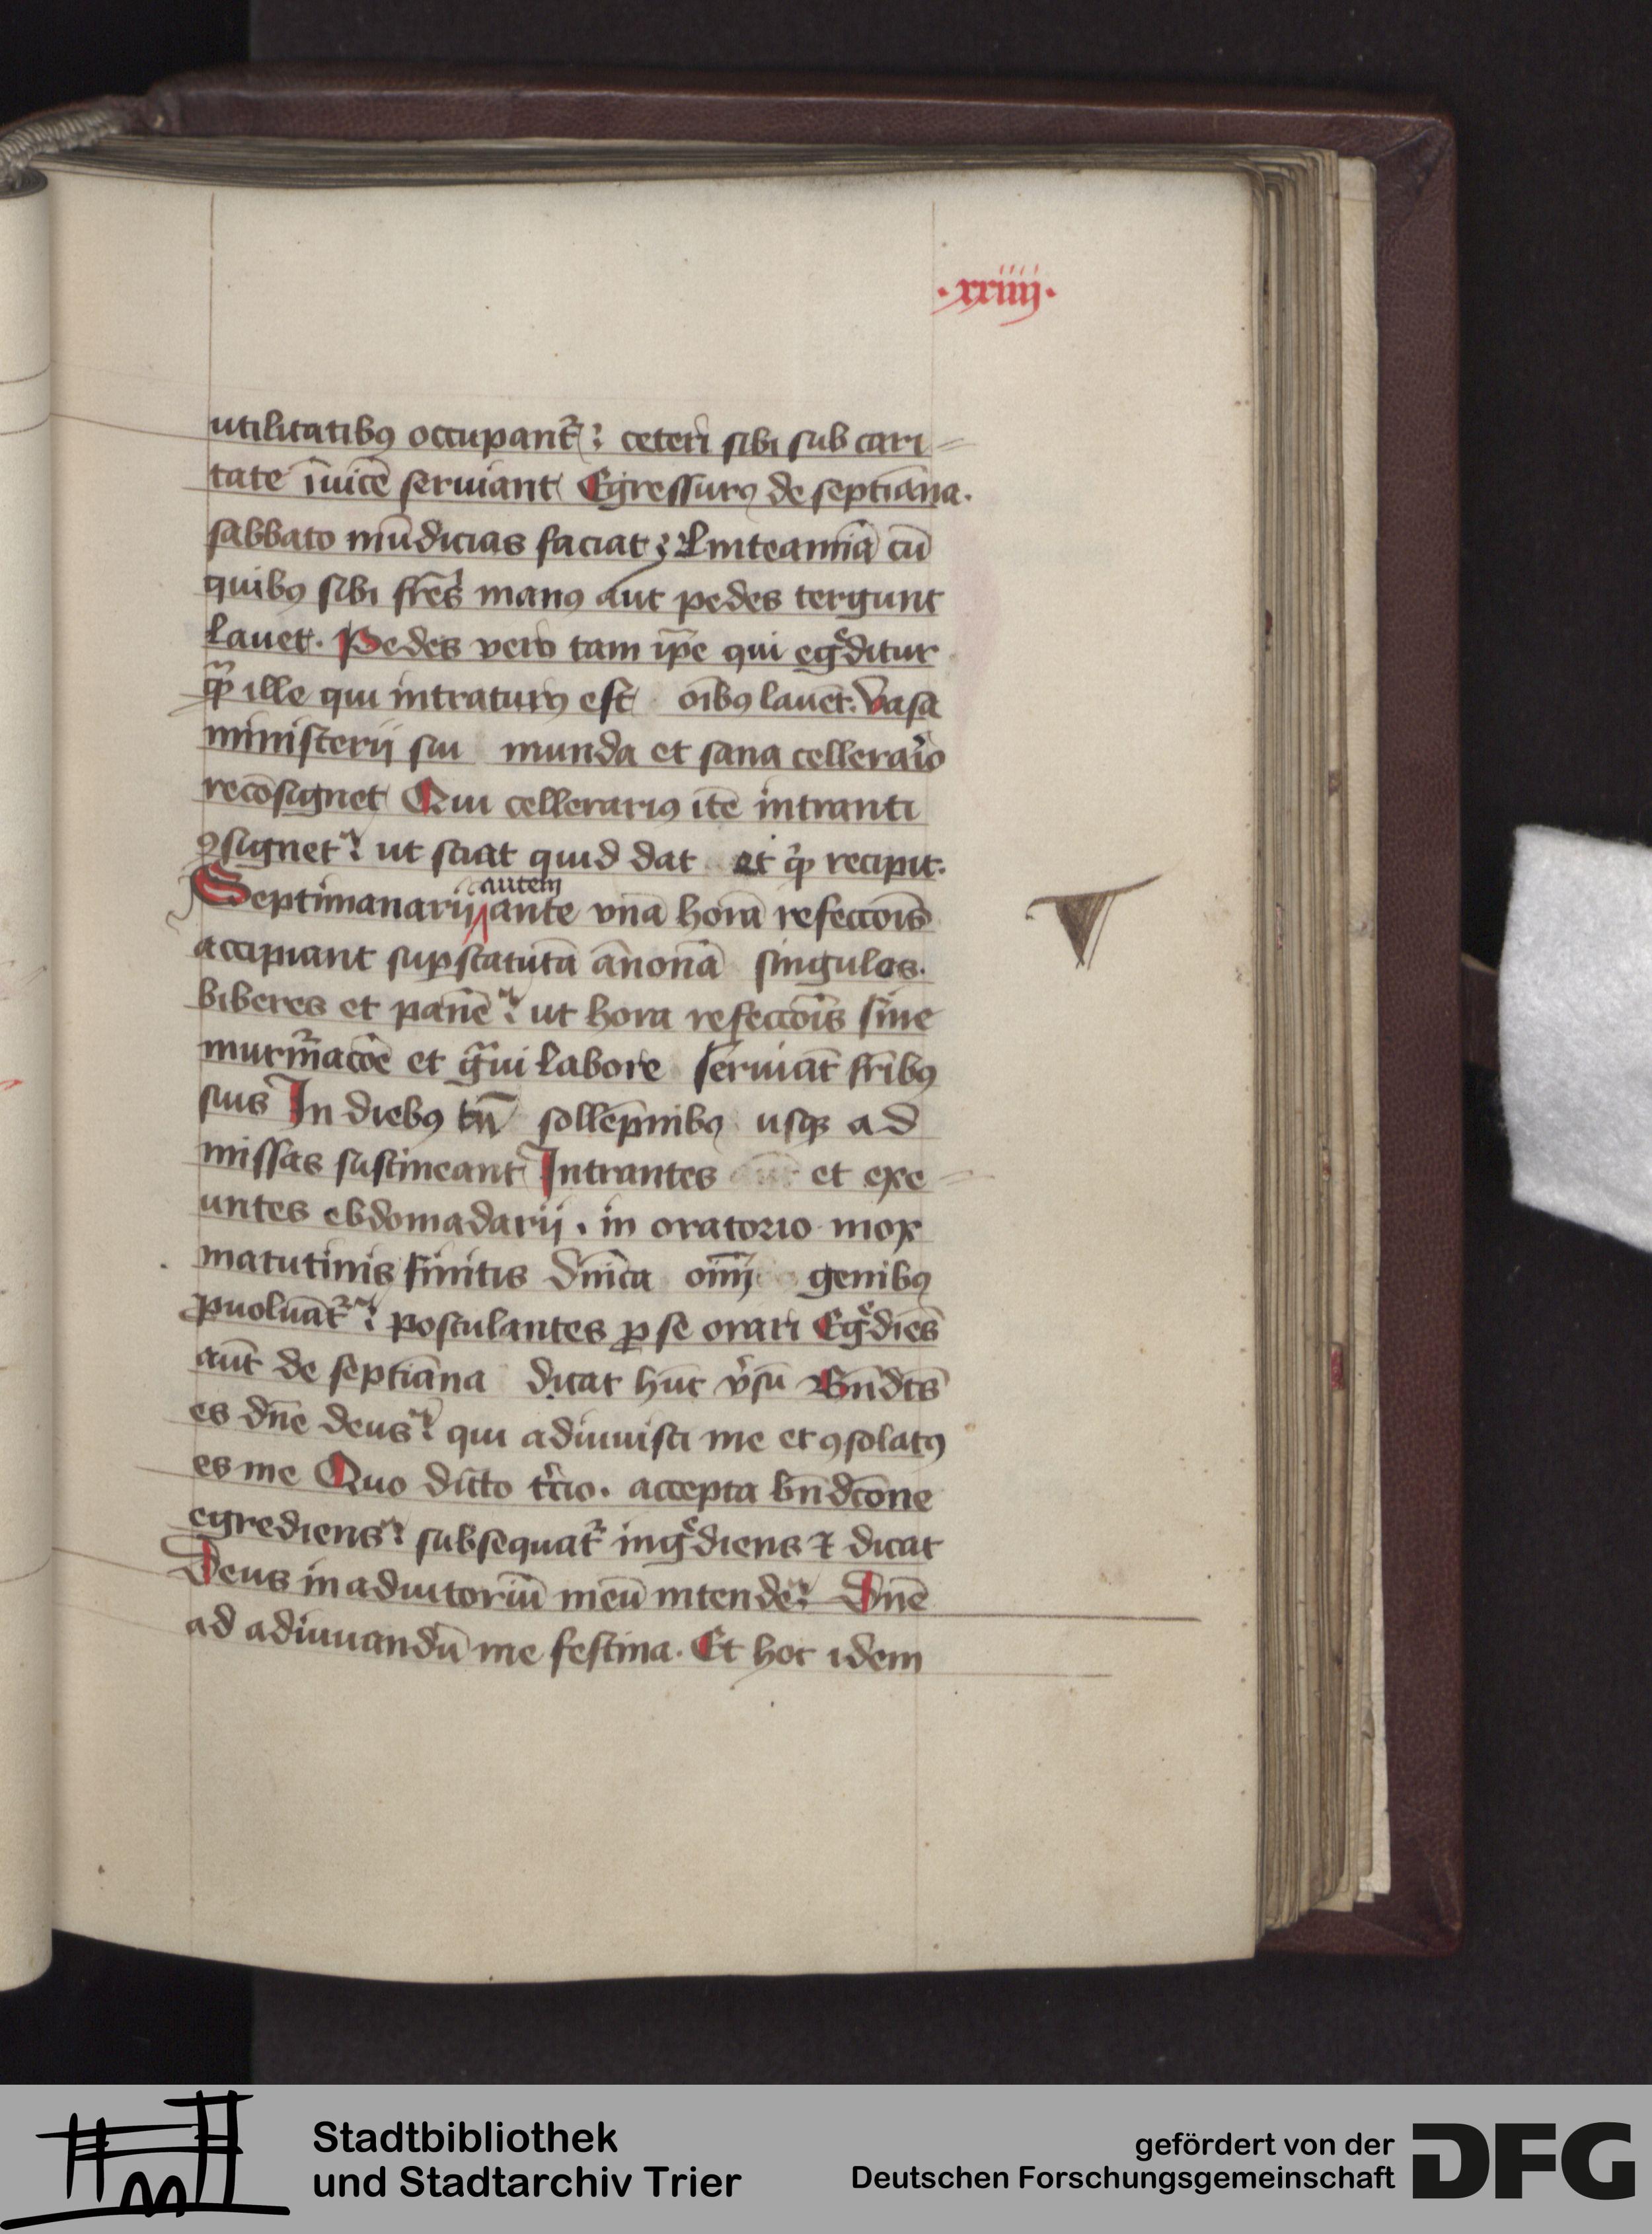 ·xxiiij·
utilitatibꝯ occupant᷑ ceteri sibi sub cari=
tate īuicē seruiant Egressurꝯ de septīana.
sabbato mūdicias faciat Linteamīa cū
quibꝯ sibi fr̄es manꝯ aut pedes tergunt
lauet. Pedes vero tam ip̄e qui egͤditur
qᷓ ille qui intraturꝯ est oībꝯ lauēt. Vasa
ministerij sui munda et sana cellerar̄io
recōsignet Qui cellerariꝯ itē intranti
ꝯsignet ut sciat quid dat et qͩ recipit.
autem
Septimanarij ante vnā horā refecc̄oīs
accipiant suꝑ statutā ānonā singulos.
biberes et panē ut hora refecc̄oīs sine
murmᷓac̄oe et gᷓui labore seruiāt fr̄ibꝯ
suis In diebꝯ tn̄ sollēpnibꝯ usqꝫ ad
missas sustineant Intrantes et exe=
untes ebdomadarij. in oratorio mox
matutinis finitis dn̄ica oīm genibꝯ
ꝓuoluāt᷑ postulantes ꝓ se orari Egͤdiēs
aūt de septīana dicat hūc v̓sū Bn̄dc̄s
es dn̄e deus qui adiuuisti me et ꝯsolatꝯ
es me Quo dicto t̓cio. accepta bn̄dc̄one
egrediens subsequat᷑ ingͤdiens ⁊ dicat
Deus in adiutoriū meū intende Dn̄e
ad adiuuandū me festina. Et hoc idem
Stadtbibliothek
und Stadtarchiv Trier
gefördert von der
Deutschen Forschungsgemeinschaft
DFG